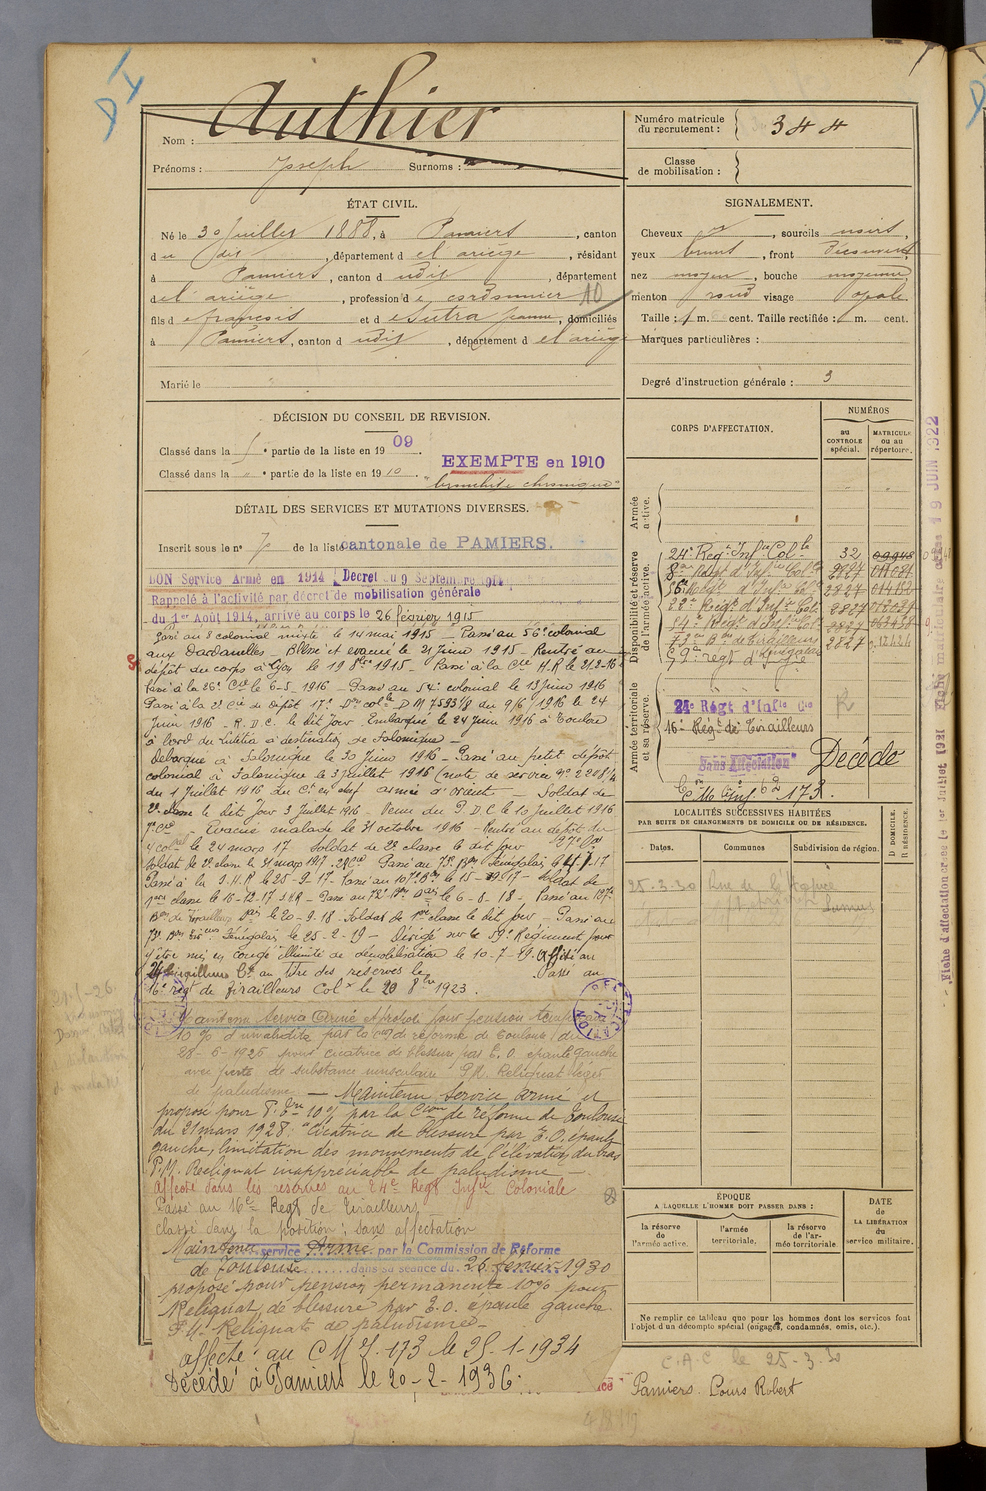 Authier
Nom :
Prénoms : Joseph Surnoms :
Numéro matricule
du recrutement : 344
Classe
de mobilisation :
ÉTAT CIVIL.
Né le 30 Juillet 1888, à Pamiers, canton
du dit, département de l'ariège, résidant
à Pamiers, canton dudit, département
de l'ariège, profession de cordonnier 10
fils de françois et de Sutra Jeanne, domiciliés
à Pamiers, canton dudit, département de l'ariège
Marié le
SIGNALEMENT.
Cheveux, sourcils noirs,
yeux bruns, front Découvert,
nez moyen, bouche moyenne,
menton rond visage opale
Taille : 1 m. cent. Taille rectifiée : 1 m. cent.
Marques particulières :
Degré d'instruction générale : 3
DÉCISION DU CONSEIL DE REVISION.
Classé dans la partie de la liste en 1909
Classé dans la " partie de la liste en 1910.
EXEMPTE en 1910
"bronchite chronique"
DÉTAIL DES SERVICES ET MUTATIONS DIVERSES.
Inscrit sous le n° 7 de la liste cantonale de PAMIERS.
BON Service Armé en 1914 Décret du 9 Septembre 1914
Rappelé à l'activité par décret de mobilisation générale
du 1er Août 1914, arrivé au corps le 26 février 1915
Passé au 8 colonial mixte le 14 mai 1915 - Passé au 56e colonial
aux Dardanelles - Blessé et évacué le 21 Juin 1915 - Rentré au
dépôt du corps à Lyon le 19 8bre 1915 - Passé à la Cie H.R le 21-2-16
Passé à la 26e Cie le 6-5-1916 - Passé au 54e colonial le 13 Juin 1916
Passé à la 2e Cie de Dépôt 17e Don colle D M 7593 1/8 du 9/6 1916 le 24
Juin 1916 - R.D.C. le dit Jour - Embarqué le 24 Juin 1916 à Toulon
à bord du Lutetia à destination de Salonique -
Débarqué à Salonique le 30 Juin 1916 - Passé au petit dépôt
colonial à Salonique le 3 Juillet 1916 (note de service n° 2208/4
du 1 Juillet 1916 du Ct en chef armée d'orient - Soldat de
2e classe le dit Jour 3 Juillet 1916 - Venu du P.D.C le 10 Juillet 1916
7e Cie Evacué malade le 31 octobre 1916 - Rentré au dépôt du
4 Col le 24 mars 17 Soldat de 2e classe le dit jour
Soldat de 2e classe le 31 mars 1917. 28e Cie Passé au 73e Bon Sénégalais
Passé à la S.H.R le 25-9-17. Passé au 107e Bon le 15 - Soldat de
1ere classe le 16-12-17 S.H.R - Passé au 72e Bon le 6-8-18 - Passé au 107e
Bon de Tirailleurs le 20-9-18 - Soldat de 1ere classe le dit jour - Passé au
73e Bon Tirrs Sénégalais le 25-2-19 - Dirigé sur le 59e Régiment pour
y être mis en congé illimité de démobilisation le 10-7-19. Affecté au
24 Tirailleurs Cx au titre des réserves le Passé au
16e regt de Tirailleurs Colx le 20 8bre 1923.
Maintenu Service Armé et proposé pour pension temporaire
10% d'invalidité par la con de réforme de Toulouse du
28-6-1926 pour cicatrice de blessure par E.O. épaule gauche
avec perte de substance musculaire P.M. Reliquat léger
de paludisme - Maintenu Service armé et
proposé pour P. Tre 10% par la Cion de réforme de Toulouse
du 21 mars 1928 : "Cicatrice de blessure par E.O, épaule
gauche, limitation des mouvements de l'élévation du bras
P.M. Reliquat inappréciable de paludisme -
Affecté dans les réserves au 24e Regt Infie Coloniale
Passé au 16e Regt de Tirailleurs
classé dans la position : sans affectation
Maintenu service Armé par la Commission de Réforme
de Toulouse dans sa séance du 26 février 1930
proposé pour pension permanente 10% pour
Reliquat de blessure par E.O. épaule gauche
P.M. Reliquats de paludisme -
affecté au C M I. 173 le 25-1-1934
Décédé à Pamiers le 20-2-1936.
CORPS D'AFFECTATION.
NUMÉROS
au
CONTROLE
spécial.
MATRICULE
ou au
répertoire.
Armée
active.
Disponibilité et réserve
de l'armée active.
24e Regt Infie Colle 32
8e Regt d'Infie Colle 2827
56e Regt d'Infie Col 2827
22e Regt d'Infie Col. 2827
54e Regt d'Infie Col 2827
73e Bon de Tirailleurs Sénégalais 2827
59e regt d'Infie
Armée territoriale
et sa réserve.
24e Régt d'Infie Cle
16e Régt de Tirailleurs
R
Sans Affectation
Décédé
C M Inf. 173.
Fiche d'affectation créée le 1er Juillet 1921
Fiche matriculaire créée 19 JUIN 1922
LOCALITÉS SUCCESSIVES HABITÉES
PAR SUITE DE CHANGEMENTS DE DOMICILE OU DE RÉSIDENCE.
Dates. Communes Subdivision de région.
D DOMICILE.
R RÉSIDENCE.
25-3-30 Rue de l'Hospice
Pamiers
ÉPOQUE
A LAQUELLE L'HOMME DOIT PASSER DANS :
la réserve
de l'armée active.
l'armée
territoriale.
la réserve
de l'ar-
mée territoriale.
DATE
de
LA LIBÉRATION
du
service militaire.
Ne remplir ce tableau que pour les hommes dont les services font
l'objet d'un décompte spécial (engagés, condamnés, omis, etc.).
C.A.C le 25-3-30
Pamiers. Cours Robert